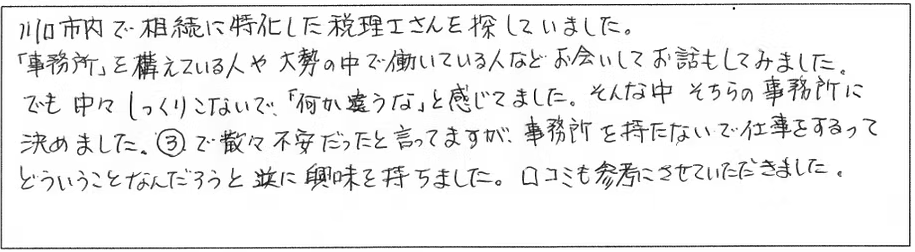 川口市内で相続に特化した税理士さんを探していました。
「事務所」を構えている人や大勢の中で働いている人などお会いしてお話もしてみました。
でも中々しっくりこないで、「何か違うな」と感じてました。そんな中そちらの事務所に
決めました。③で散々不安だったと言ってますが、事務所を持たないで仕事をするって
どういうことなんだろうと逆に興味を持ちました。口コミも参考にさせていただきました。